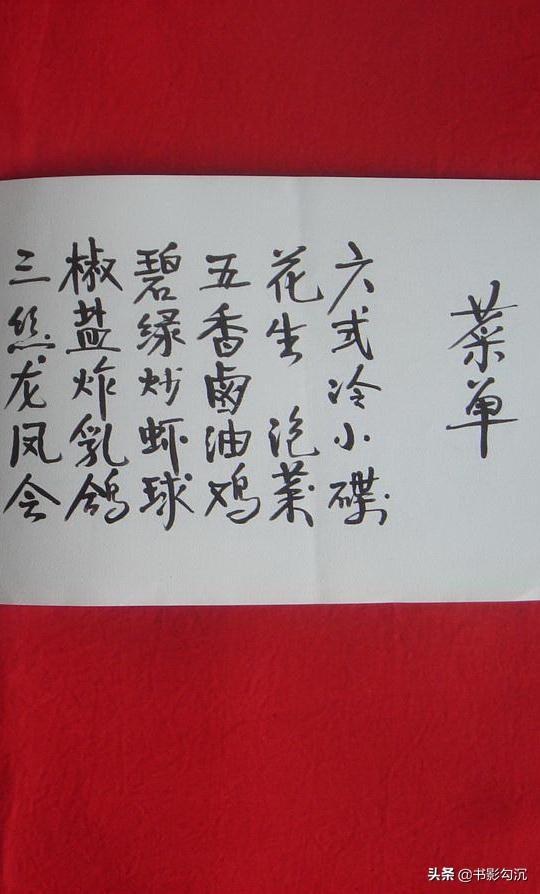 菜单
六式冷小碟
花生 泡菜
五香鹵油鸡
碧绿炒虾球
椒盐炸乳鸽
三丝龙凤会
头条 @书影勾沉